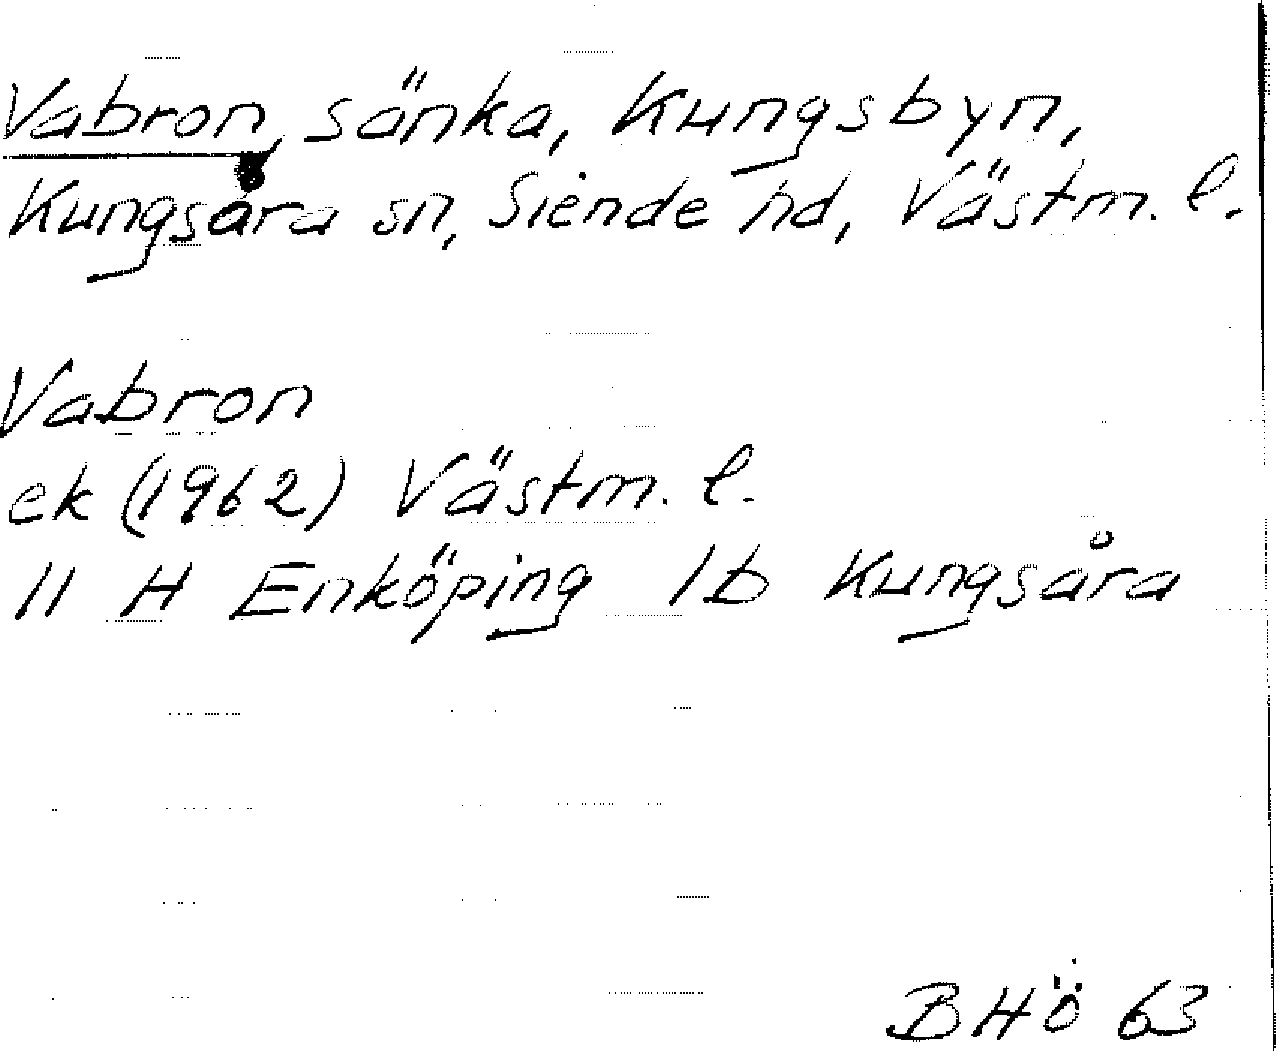 Vabron, sänka, Kungsbyn,
Kungsåra sn, Siende hd, Västm. l.
Vabron
ek (1962) Västm. l.
11 H Enköping 1b Kungsåra
BHÖ 63